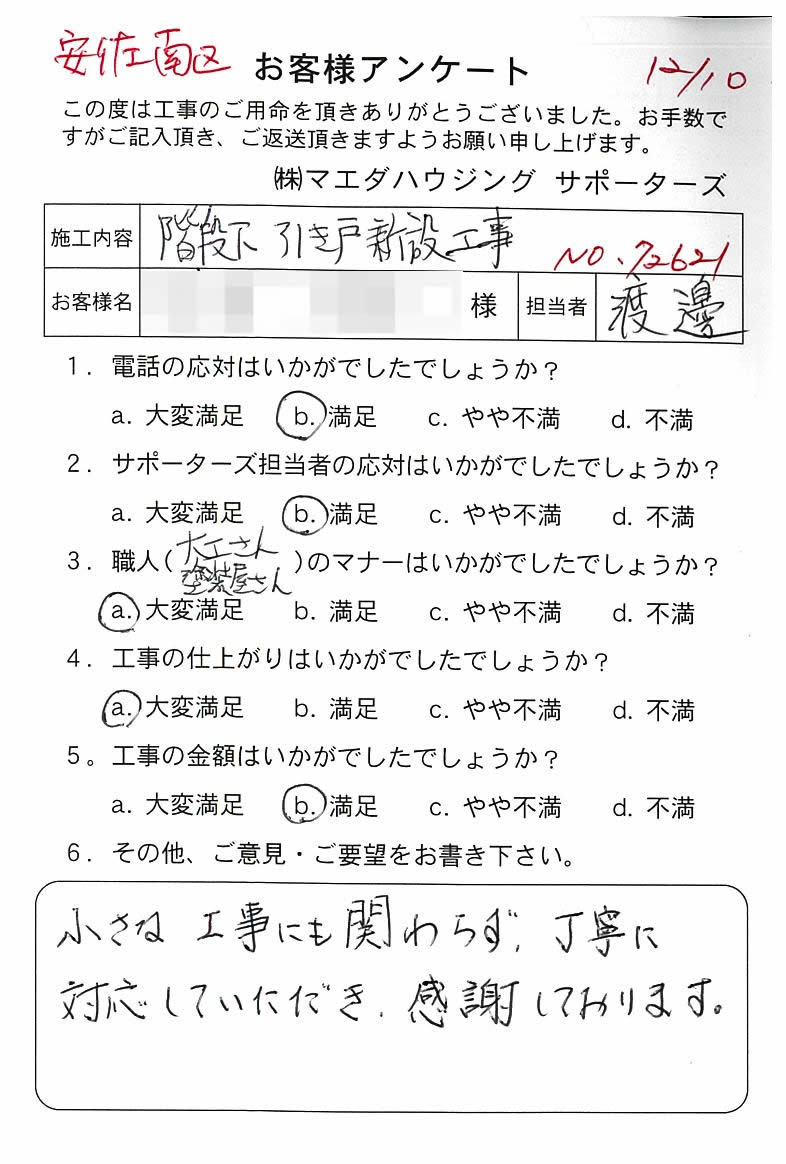 安佐南区 お客様アンケート 12/10
この度は工事のご用命を頂きありがとうございました。お手数で
すがご記入頂き、ご返送頂きますようお願い申し上げます。
㈱マエダハウジング サポーターズ
施工内容 階段下 引き戸新設工事
NO.72621
お客様名 様 担当者 渡邊
1. 電話の応対はいかがでしたでしょうか？
a. 大変満足 b. 満足 c. やや不満 d. 不満
2. サポーターズ担当者の応対はいかがでしたでしょうか？
a. 大変満足 b. 満足 c. やや不満 d. 不満
3. 職人(大工さん 塗装屋さん)のマナーはいかがでしたでしょうか？
a. 大変満足 b. 満足 c. やや不満 d. 不満
4. 工事の仕上がりはいかがでしたでしょうか？
a. 大変満足 b. 満足 c. やや不満 d. 不満
5。工事の金額はいかがでしたでしょうか？
a. 大変満足 b. 満足 c. やや不満 d. 不満
6. その他、ご意見・ご要望をお書き下さい。
小さな工事にも関わらず、丁寧に
対応していただき、感謝しております。